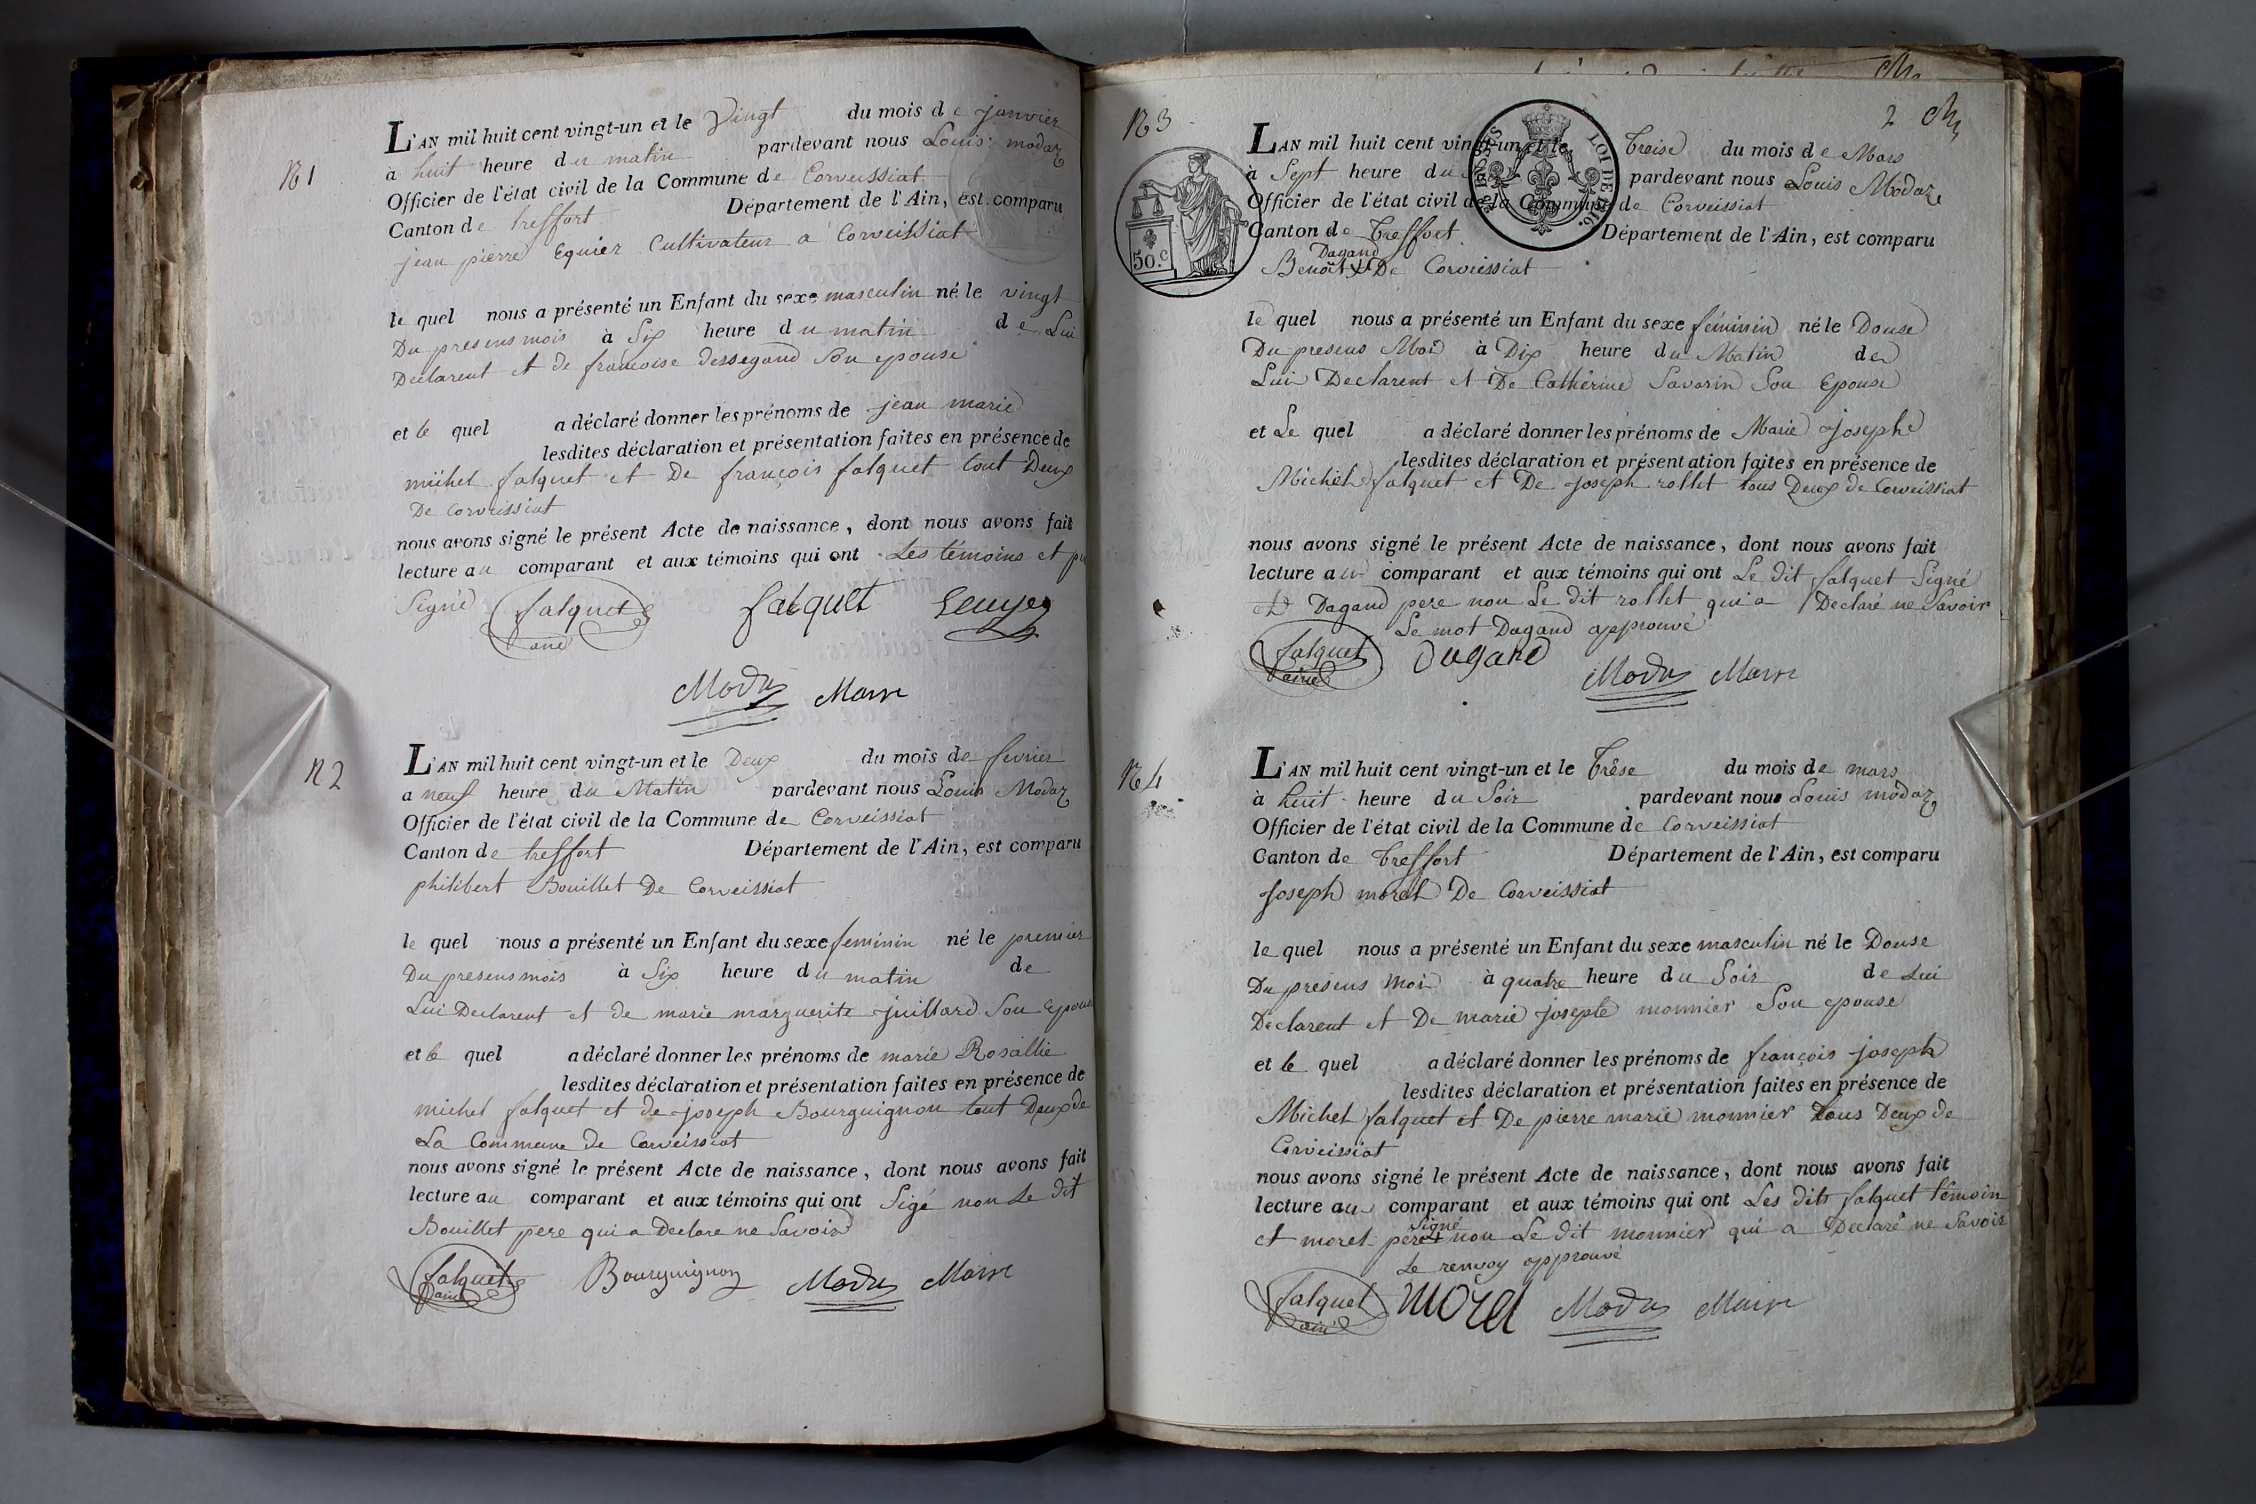 N 1
L'AN mil huit cent vingt-un et le Vingt du mois de janvier
à huit heure du matin pardevant nous Louis modaz
Officier de l'état civil de la Commune de Corveissiat
Canton de treffort Département de l'Ain, est comparu
jean pierre Equier Cultivateur a Corveissiat
le quel nous a présenté un Enfant du sexe masculin né le vingt
Du presens mois à Six heure du matin de Lui
Declarent et de francoise dessegand Son epouse
et le quel a déclaré donner les prénoms de jean marie
lesdites déclaration et présentation faites en présence de
michel falquet et De françois falquet tout Deux
De Corveissiat
nous avons signé le présent Acte de naissance, dont nous avons fait
lecture au comparant et aux témoins qui ont Les témoins et
Signé falquet falquet
Modas Maire
N 2
L'AN mil huit cent vingt-un et le Deux du mois de fevrier
a neuf heure du Matin pardevant nous Louis Modaz
Officier de l'état civil de la Commune de Corveissiat
Canton de treffort Département de l'Ain, est comparu
philibert Bouillet De Corveissiat
le quel nous a présenté un Enfant du sexe feminin né le premier
Du presens mois à Six heure du matin de
Lui Declarent et de marie marguerite juillard Son Epouse
et le quel a déclaré donner les prénoms de marie Rosallie
lesdites déclaration et présentation faites en présence de
michel falquet et de joseph Bourguignon tout Deux de
La Commune de Corveissiat
nous avons signé le présent Acte de naissance, dont nous avons fait
lecture au comparant et aux témoins qui ont Sigé non Le dit
Bouillet pere qui a Declare ne Savoir
falquet ainé Bourguignon Modas Maire
2
N 3
L'AN mil huit cent vingt-un et le Treise du mois de Mars
à Sept heure du pardevant nous Louis Modaz
Officier de l'état civil de la Commune de Corveissiat
Canton de Treffort Département de l'Ain, est comparu
Dagand
Benoit De Corveissiat
50.c
LOI DE 1816.
le quel nous a présenté un Enfant du sexe féminin né le Douse
Du presens Moi à Dix heure du Matin de
Lui Declarent et De Catherine Savarin Son Epouse
et Le quel a déclaré donner les prénoms de Marie Josephe
lesdites déclaration et présentation faites en présence de
Michel falquet et De Joseph rollet tous Deux de Corveissiat
nous avons signé le présent Acte de naissance, dont nous avons fait
lecture au comparant et aux témoins qui ont Le dit falquet Signé
et Dagand pere non Le dit rollet qui a Declaré ne Savoir
Le mot Dagand approuvé
falquet ainé Dagand Modas Maire
N 4
L'AN mil huit cent vingt-un et le Trêse du mois de mars
à huit heure du Soir pardevant nous Louis modaz
Officier de l'état civil de la Commune de Corveissiat
Canton de Treffort Département de l'Ain, est comparu
Joseph morel De Corveissiat
le quel nous a présenté un Enfant du sexe masculin né le Douse
Du presens Moi à quatre heure du Soir de Lui
Declarent et De marie josephe monnier Son epouse
et le quel a déclaré donner les prénoms de françois joseph
lesdites déclaration et présentation faites en présence de
Michel falquet et De pierre marie monnier tous Deux de
Corveissiat
nous avons signé le présent Acte de naissance, dont nous avons fait
lecture au comparant et aux témoins qui ont Les dits falquet témoin
Signé
et morel pere non Le dit monnier qui a Declaré ne Savoir
Le renvoy approuvé
falquet ainé morel Modas Maire